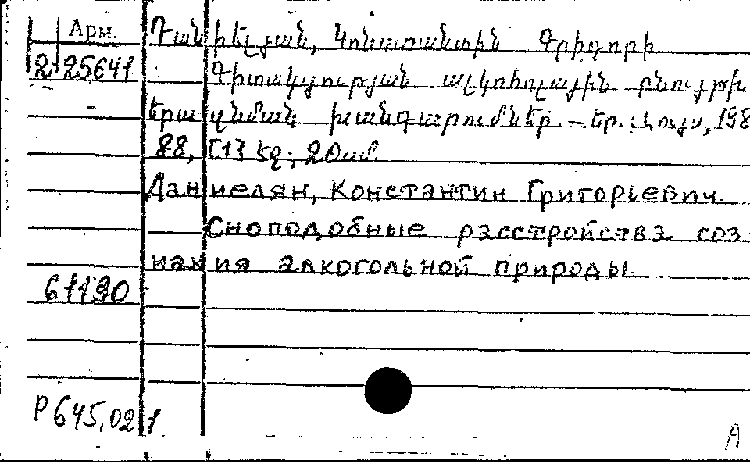 Арм. Դանիելյան, Կոնստանտին Գրիգորի
2 25641 Գիտակցության ալկոհոլային բնույթի
երազնման խանգարումներ. – Եր.: Լույս, 198
88, [1] էջ; 20սմ
Даниелян, Константин Григорьевич.
Сноподобные расстройства соз
нания алкогольной природы
61190
Р 645.02 1
А